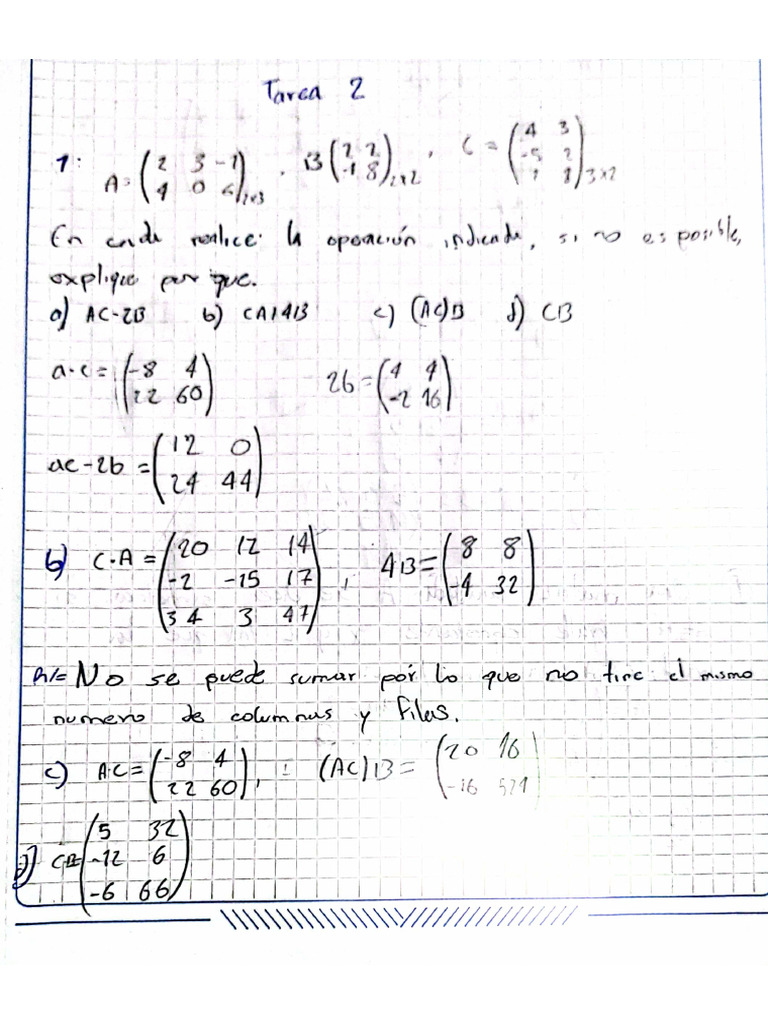 Tarea 2
1: A = (2 3 -1 / 4 0 6)2x3 , B (2 2 / -1 8)2x2 , C = (4 3 / -5 2 / 7 8)3x2
En cada realice: la operación indicada, si no es posible,
explique por que.
a) AC-2B b) CA+4B c) (AC)B d) CB
a·c = (-8 4 / 22 60) 2b = (4 4 / -2 16)
ac-2b = (12 0 / 24 44)
b) C·A = (20 12 14 / -2 -15 17 / 34 3 47) , 4B = (8 8 / -4 32)
R/= No se puede sumar por lo que no tine el mismo
numero de columnas y filas.
c) A·C = (-8 4 / 22 60), : (AC)B = (20 16 / -16 524)
d) CB = (5 32 / -12 6 / -6 66)